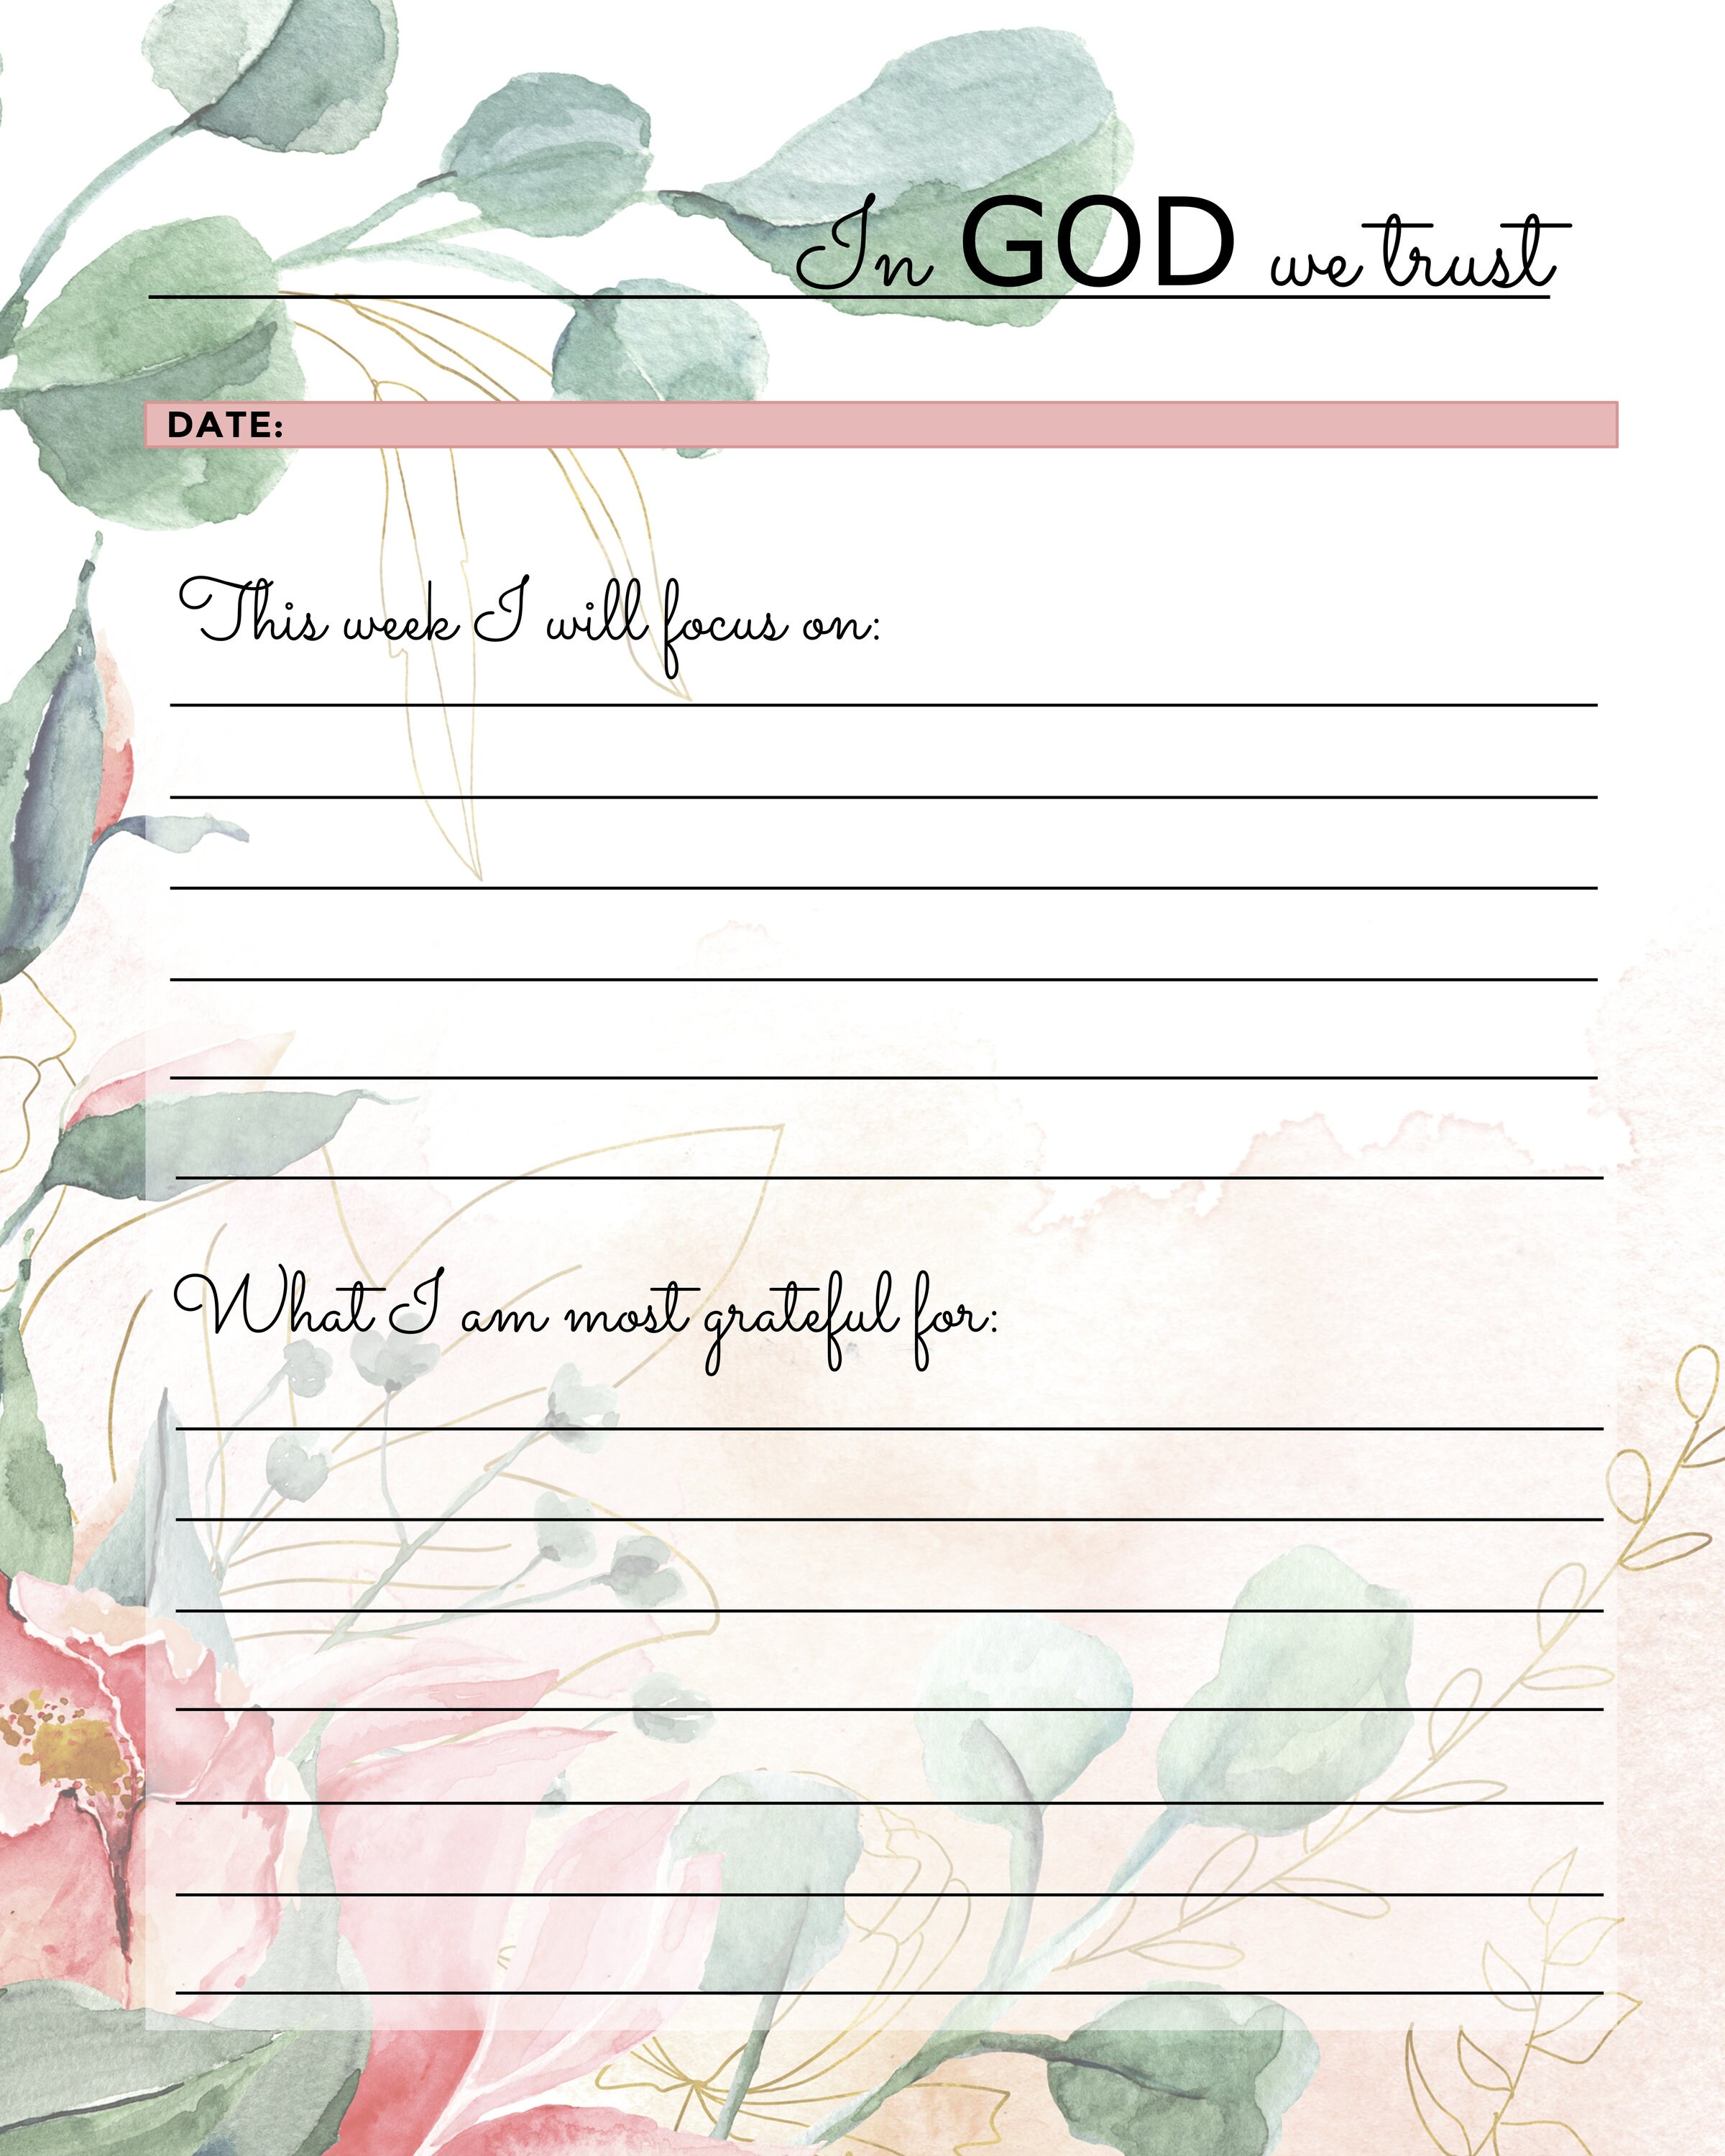 In GOD we trust
DATE:
This week I will focus on:
What I am most grateful for: